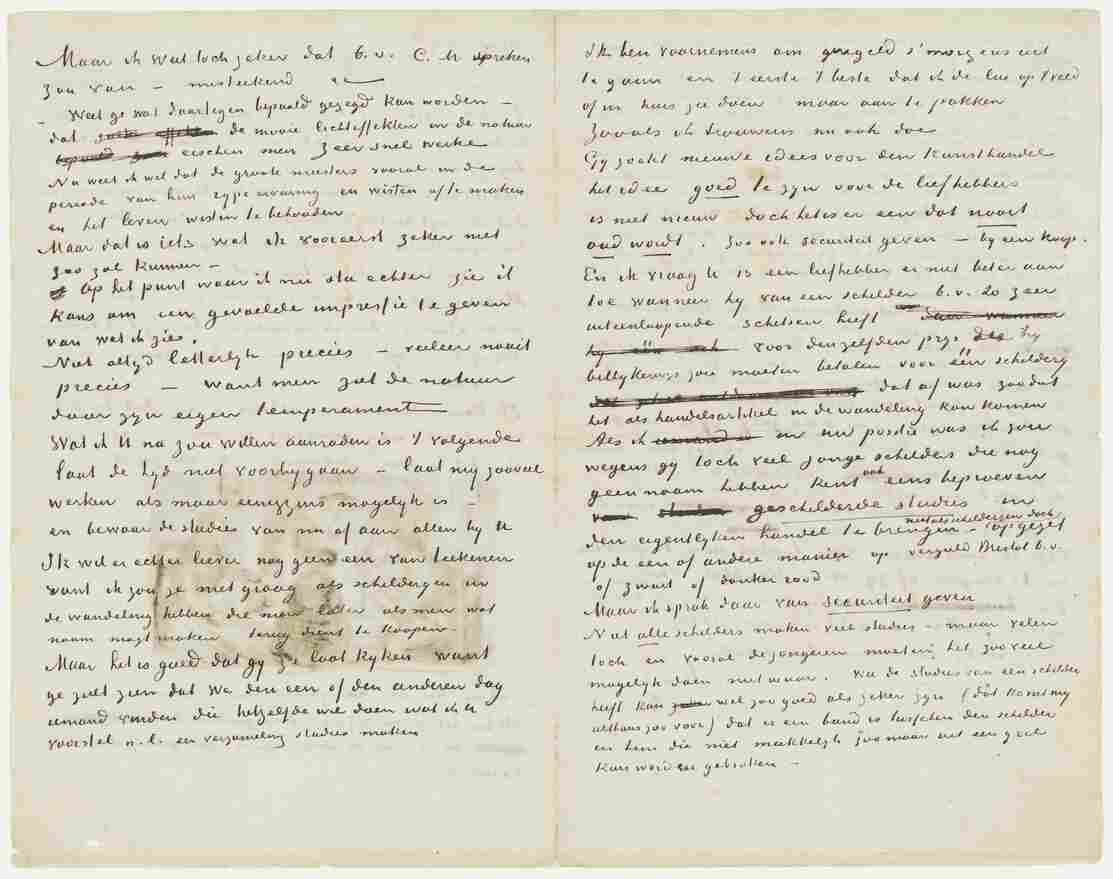 Maar ik weet toch zeker dat b.v. C.M. spreken
zou van – misteekend &c
Weet ge wat daartegen bepaald gezegd kan worden –
dat de mooie lichteffekten in de natuur
eischen men zeer snel werke
Nu weet ik wel dat de groote meesters vooral in de
periode van hun rijpe ervaring en wisten af te maken
en het leven wisten te behouden
Maar dat is iets wat ik vooreerst zeker niet
zoo zal kunnen –
Op het punt waar ik nu sta echter zie ik
kans om een gevoelde impressie te geven
van wat ik zie.
Niet altijd letterlijk precies – veeleer nooit
precies – want men ziet de natuur
door zijn eigen temperament
Wat ik U nu zou willen aanraden is 't volgende
laat de tijd niet voorbijgaan – laat mij zooveel
werken als maar eenigzins mogelijk is –
en bewaar de studies van nu af aan allen bij U
Ik wil er echter liever nog geen een van teekenen
want ik zou ze niet graag als schilderijen in
de wandeling hebben die men later als men wat
naam mogt maken terug dient te koopen –
Maar het is goed dat gij ze laat kijken want
ge zult zien dat we den een of den anderen dag
iemand vinden die hetzelfde wil doen wat ik U
voorstel n.l. een verzameling studies maken
Ik ben voornemens om geregeld s'morgens uit
te gaan en 't eerste 't beste dat ik de lui op 't veld
of in huis zie doen maar aan te pakken
zooals ik trouwens nu ook doe
Gij zoekt nieuwe idees voor den kunsthandel
het idee goed te zijn voor de liefhebbers
is niet nieuw doch het is er een dat nooit
oud wordt. Zoo ook securiteit geven – bij een koop.
En ik vraag U is een liefhebber er niet beter aan
toe wanneer hij van een schilder b.v. 20 zeer
uiteenloopende schetsen heeft
voor denzelfden prijs die hij
billijkerwijs zou moeten betalen voor één schilderij
dat af was zoodat
het als handelsartikel in de wandeling kan komen
Als ik in uw positie was ik zou
wegens gij toch veel jonge schilders die nog
geen naam hebben kent ook eens beproeven
geschilderde studies in
den eigentlijken handel te brengen – niet als schilderijen doch opgezet
op de een of andere manier op verguld Bristol b.v.
of zwart of donker rood
Maar ik sprak daar van securiteit geven
Niet alle schilders maken veel studies – maar velen
toch en vooral de jongeren moeten het zooveel
mogelijk doen niet waar. Wie de studies van een schilder
heeft kan wel zoo goed als zeker zijn (dat komt mij
althans zoo voor) dat er een band is tusschen den schilder
en hem die niet makkelijk zoo maar uit een gril
kan worden gebroken –